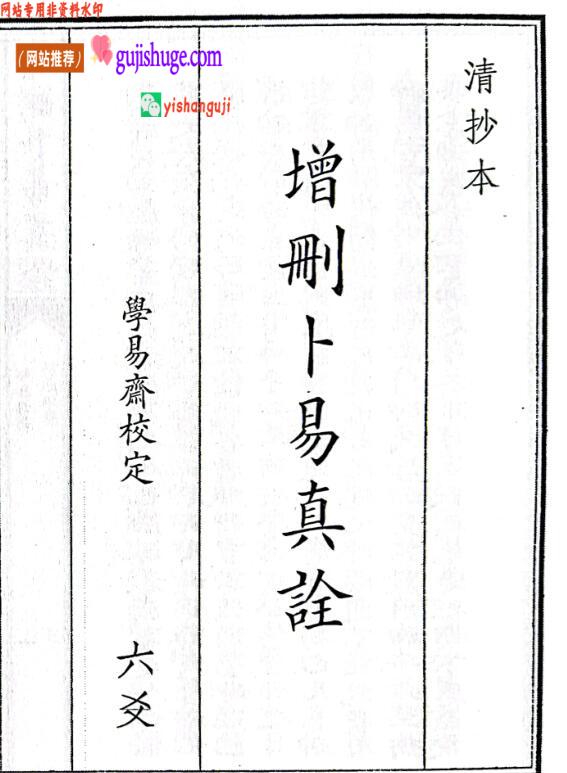 网站专用非资料水印
（网站推荐）
gujishuge.com
yishanguji
清抄本
增刪卜易真詮
學易齋校定 六爻